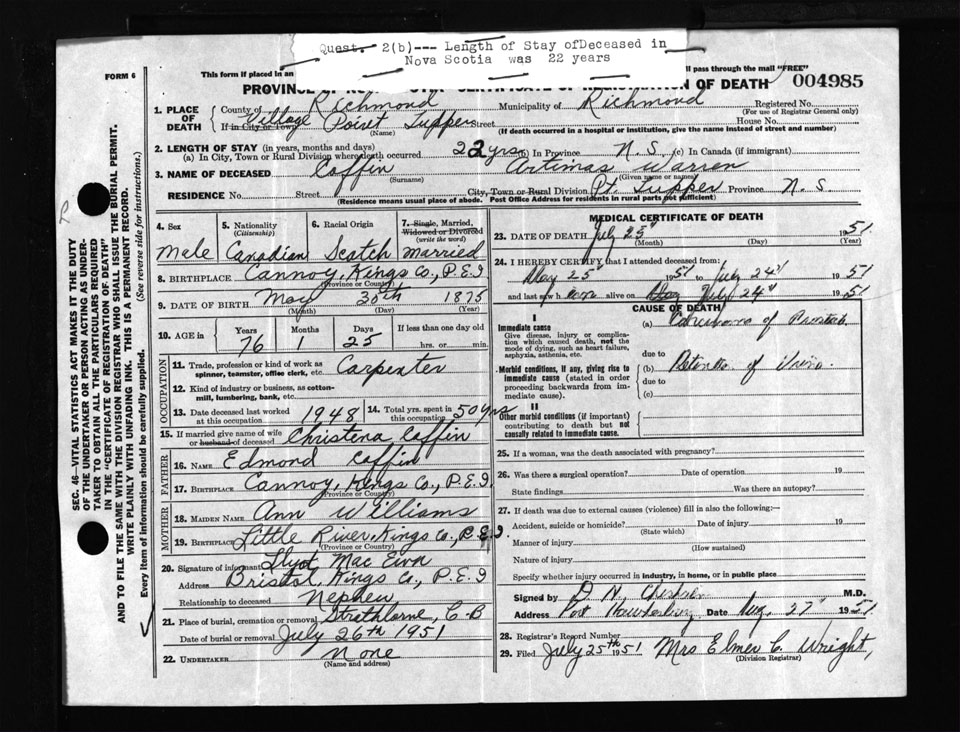 Quest. 2(b)--- Length of Stay ofDeceased in
Nova Scotia was 22 years
FORM 6
This form if placed in an
ll pass through the mail "FREE"
004985
PROVINCE OF
OF DEATH
1. PLACE OF DEATH
County of Richmond Municipality of Richmond Registered No.
(For use of Registrar General only)
If in City or Town Village Point Tupper Street House No.
(Name) (If death occurred in a hospital or institution, give the name instead of street and number)
2. LENGTH OF STAY (in years, months and days)
(a) In City, Town or Rural Division where death occurred 22 yrs (b) In Province N.S. (c) In Canada (if immigrant)
3. NAME OF DECEASED Coffin Artimas Warren
(Surname) (Given name or names)
RESIDENCE No. Street City, Town or Rural Division Pt. Tupper Province N.S.
(Residence means usual place of abode. Post Office Address for residents in rural parts not sufficient)
SEC. 46—VITAL STATISTICS ACT MAKES IT THE DUTY
OF THE UNDERTAKER OR PERSON ACTING AS UNDER-
TAKER TO OBTAIN ALL THE PARTICULARS REQUIRED
IN THE "CERTIFICATE OF REGISTRATION OF DEATH"
AND TO FILE THE SAME WITH THE DIVISION REGISTRAR WHO SHALL ISSUE THE BURIAL PERMIT.
WRITE PLAINLY WITH UNFADING INK. THIS IS A PERMANENT RECORD.
Every item of information should be carefully supplied. (See reverse side for instructions.)
4. Sex
Male
5. Nationality
(Citizenship)
Canadian
6. Racial Origin
Scotch
7. Single, Married,
Widowed or Divorced
(write the word)
Married
8. BIRTHPLACE Cannoy, Kings Co., P.E.I
(Province or Country)
9. DATE OF BIRTH May 30th 1875
(Month) (Day) (Year)
10. AGE in Years Months Days If less than one day old
76 1 25 hrs. or min.
OCCUPATION
11. Trade, profession or kind of work as
spinner, teamster, office clerk, etc. Carpenter
12. Kind of industry or business, as cotton-
mill, lumbering, bank, etc.
13. Date deceased last worked
at this occupation 1948
14. Total yrs. spent in
this occupation 50 yrs
15. If married give name of wife
or husband of deceased Christena Coffin
FATHER
16. NAME Edmond Coffin
17. BIRTHPLACE Cannoy, Kings Co., P.E.I
(Province or Country)
MOTHER
18. MAIDEN NAME Ann Williams
19. BIRTHPLACE Little River, Kings Co., P.E.I.
(Province or Country)
20. Signature of informant Mac
Address Bristol, Kings Co., P.E.I
Relationship to deceased Nephew
21. Place of burial, cremation or removal Strathlorne, C.B
Date of burial or removal July 26th 1951
22. UNDERTAKER None
(Name and address)
MEDICAL CERTIFICATE OF DEATH
23. DATE OF DEATH July 25" 1951
(Month) (Day) (Year)
24. I HEREBY CERTIFY that I attended deceased from:
May 25" 1951 to July 24" 1951
and last saw h alive on July 24" 1951
CAUSE OF DEATH
I
Immediate cause
Give disease, injury or complica-
tion which caused death, not the
mode of dying, such as heart failure,
asphyxia, asthenia, etc.
(a) Carcinoma of Prostate
due to
Morbid conditions, if any, giving rise to
immediate cause (stated in order
proceeding backwards from im-
mediate cause).
(b) Retention of Urine.
due to
(c)
II
Other morbid conditions (if important)
contributing to death but not
causally related to immediate cause.
25. If a woman, was the death associated with pregnancy?
26. Was there a surgical operation? Date of operation 19
State findings Was there an autopsy?
27. If death was due to external causes (violence) fill in also the following:—
Accident, suicide or homicide? Date of injury 19
(State which)
Manner of injury
(How sustained)
Nature of injury
Specify whether injury occurred in industry, in home, or in public place
Signed by D N. M.D.
Address Port Hawkesbury Date Aug. 27" 1951
28. Registrar's Record Number
29. Filed July 25th 1951 Mrs Elmer C. Wright,
(Division Registrar)